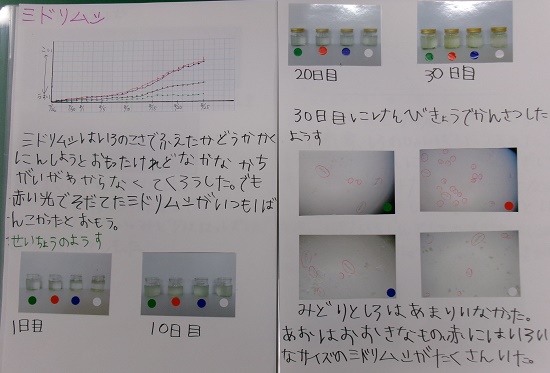 ミドリムシ
ミドリムシはいろのこさでふえたかどうかかく
にんしようとおもたけれどなかなかかち
がいがわからなくてくろうした。でも
赤い光でそだてたミドリムシがいつもいちば
んこかったとおもう。
せいちょうのようす
1日目
10日目
20日目
30日目
30日目にけんびきょうでかんさつした
ようす
みどりとしろはあまりいなかった。
あおはおおきなもの、赤にはいろい
なサイズのミドリムシがたくさんいた。